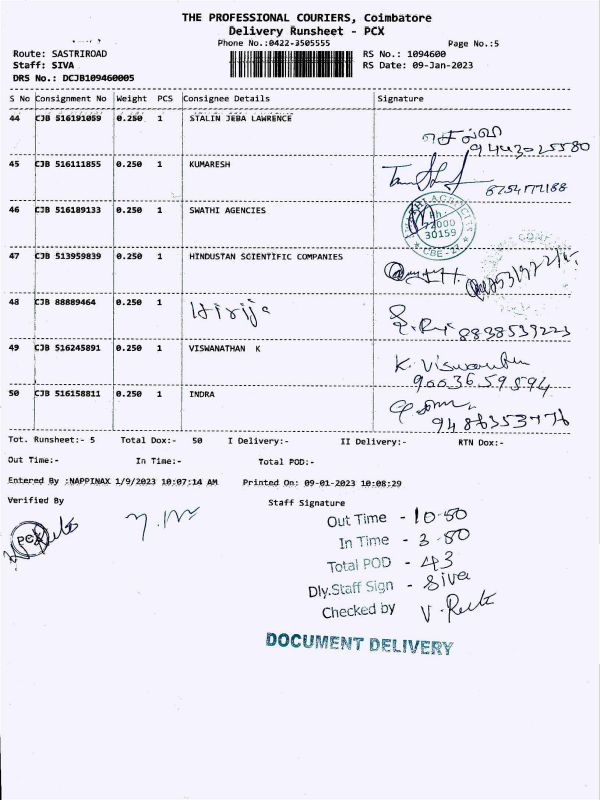 THE PROFESSIONAL COURIERS, Coimbatore
Delivery Runsheet - PCX
Phone No.:0422-3505555
Page No.:5
Route: SASTRIROAD
RS No.: 1094600
Staff: SIVA
RS Date: 09-Jan-2023
DRS No.: DCJB109460005
S No Consignment No Weight PCS Consignee Details Signature
44 CJB 516191059 0.250 1 STALIN JEBA LAWRENCE
செல்வி
9443025580
45 CJB 516111855 0.250 1 KUMARESH
8754777188
46 CJB 516189133 0.250 1 SWATHI AGENCIES
Ph:
72000
30159
CBE - 27
47 CJB 513959839 0.250 1 HINDUSTAN SCIENTIFIC COMPANIES
48 CJB 88889464 0.250 1 Hirija
8838539223
49 CJB 516245891 0.250 1 VISWANATHAN K
K. Viswanathan
90036 59894
50 CJB 516158811 0.250 1 INDRA
9486353776
Tot. Runsheet:- 5 Total Dox:- 50 I Delivery:- II Delivery:- RTN Dox:-
Out Time:- In Time:- Total POD:-
Entered By :NAPPINAX 1/9/2023 10:07:14 AM Printed On: 09-01-2023 10:08:29
Verified By Staff Signature
PCX
Out Time - 10-50
In Time - 3.50
Total POD - 43
Dly.Staff Sign - Siva
Checked by V.
DOCUMENT DELIVERY